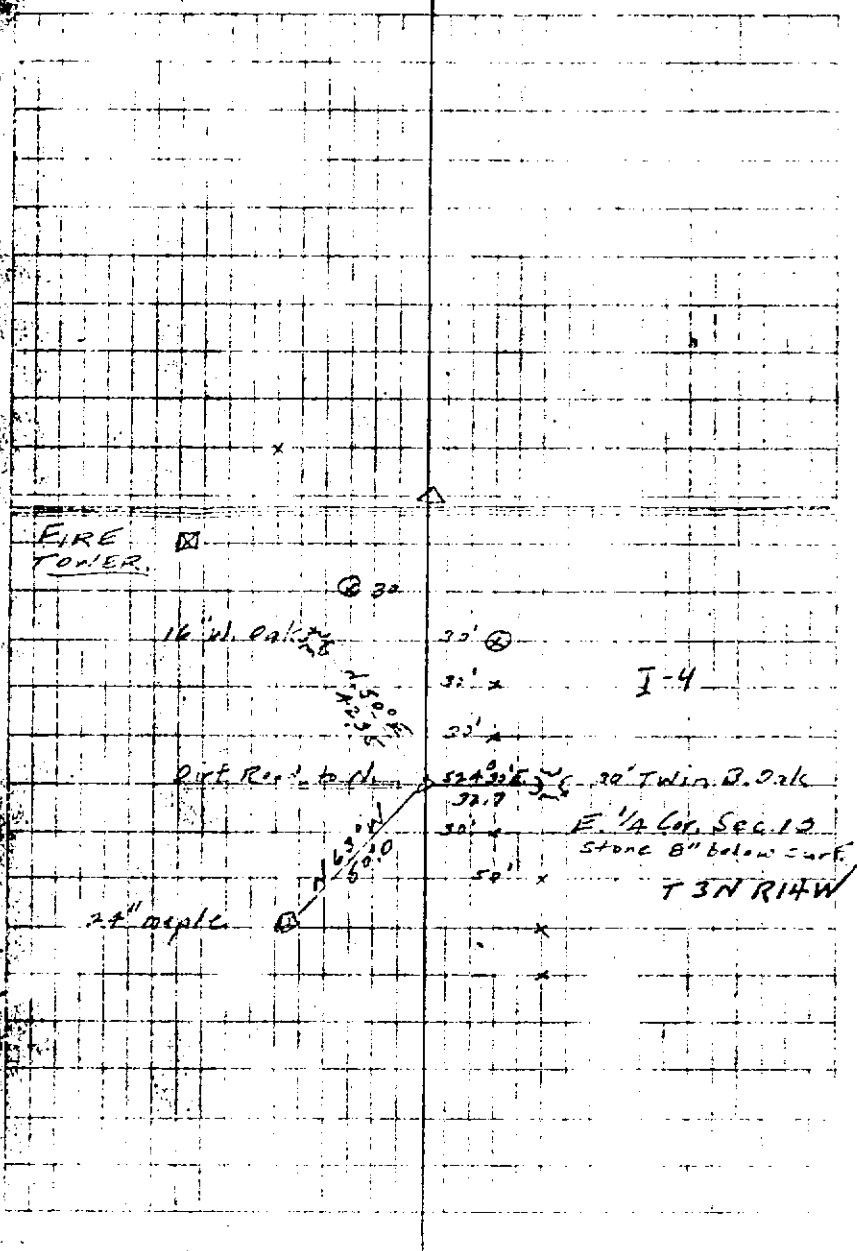 FIRE
TOWER.
30
16" W. Oak
30'
30'
I-4
30'
Dirt Road to N.
S24°30'E
32.7
30" Twin B. Oak
N 63° W
50.0
30'
E. 1/4 Cor. Sec. 12
Stone 8" below surf.
50'
T 3N R14W
24" maple